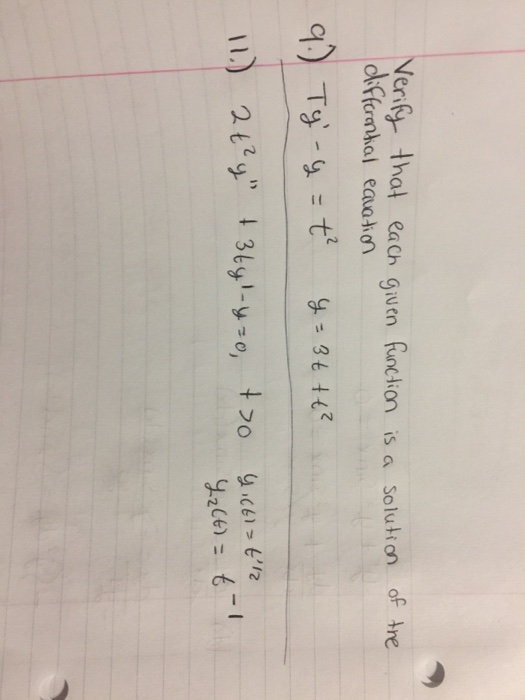 Verify that each given function is a solution of the
differential equation
9.) Ty' - y = t² y = 3t + t²
11.) 2t²y" + 3ty' - y = 0, t > 0 y₁(t) = t^1/2
y₂(t) = t^-1